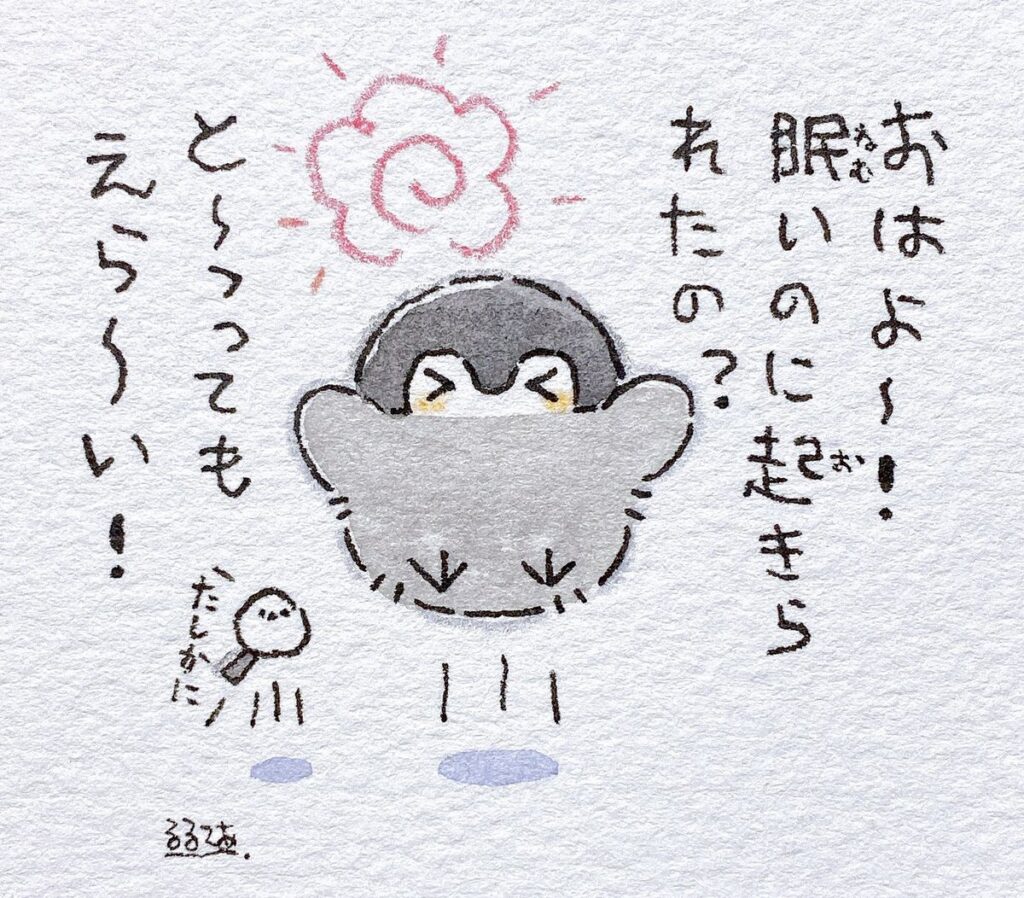 おはよ〜!
眠いのに起きら
れたの?
と〜っっても
えら〜い!
たしかに
るるてあ.